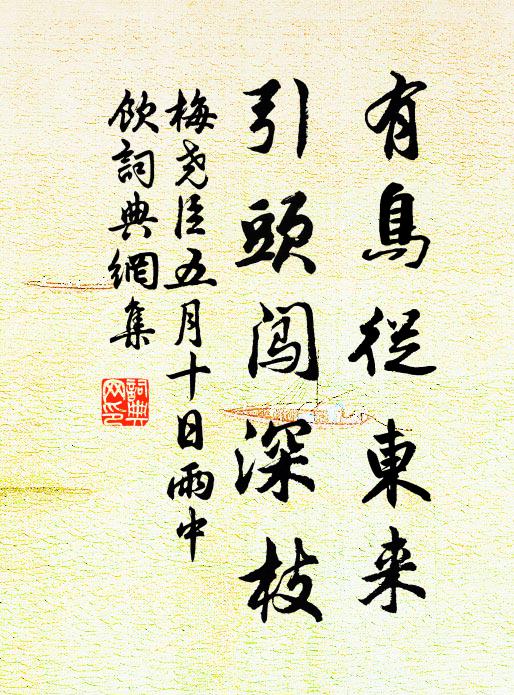 有鳥從東来
引頭闖深枝
梅尧臣五月十日雨中
飲詞典網集
詞典
网印